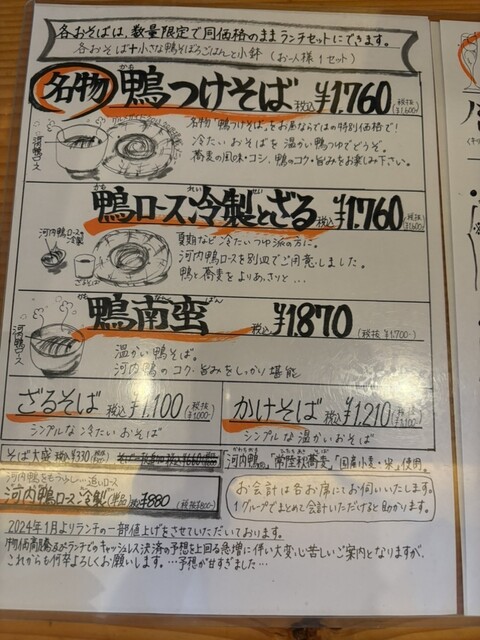 各おそばは、数量限定で同価格のままランチセットにできます。
各おそば+小さな鴨そぼろごはんと小鉢 (お一人様1セット)
名物 鴨つけそば 税込 ¥1,760 (税抜 ¥1,600)
かも
名物「鴨つけそば」をお昼ならではの特別価格で!
冷たいおそばを温かい鴨つゆでどうぞ。
蕎麦の風味・コシ、鴨のコク・旨みをお楽しみ下さい。
河内鴨ロース
鴨ロース冷製とざる 税込 ¥1,760 (税抜 ¥1,600)
かも れい せい
河内鴨ロースの冷製
夏期など冷たいつゆ派の方に。
河内鴨ロースを別皿でご用意しました。
鴨と蕎麦をよりあっさりと...
鴨南蛮 税込 ¥1,870 (税抜 ¥1,700-)
かも なん ばん
河内鴨ロース
温かい鴨そば。
河内鴨のコク・旨みをしっかり堪能
ざるそば 税込 ¥1,100 (税抜 ¥1,000-)
シンプルな冷たいおそば
かけそば 税込 ¥1,210 (税抜 ¥1,100-)
シンプルな温かいおそば
そば大盛 税込 ¥330
河内鴨、「常陸秋蕎麦」、「国産小麦・米」使用。
河内鴨をもう少し...追いロース
河内鴨ロース冷製(半皿) 税込 ¥880 (税抜 ¥800-)
お会計は各お席にてお伺いいたします。
1グループでまとめて会計いただけると助かります。
2024年1月よりランチの一部値上げをさせていただいております。
物価高騰及びランチでのキャッシュレス決済の予想を上回る急増に伴い大変心苦しいご案内となりますが、
これからも何卒よろしくお願いします。...予想が甘すぎました...